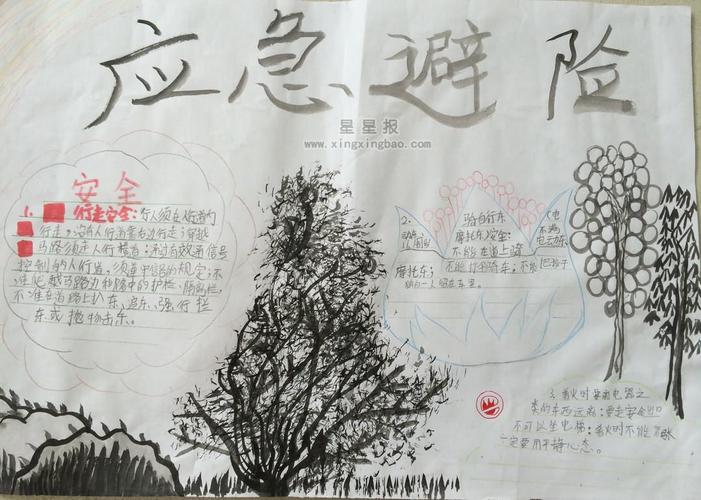 应急避险
星星报
www.xingxingbao.com
安全
1. 行走安全:行人须在人行道内
行走,没有人行道靠右边行走;穿越
马路须走人行横道;通过有效通信号
控制的人行道,须遵守信号的规定;不
准爬越马路边和路中的护栏、隔离栏,
不准在道路上扒车、追车、强行拦
车或抛物击车。
2. 骑自行车
摩托车安全:
不能在道上骑
摩托车;不能打伞骑车;不能
3、着火时要离电器之
类的东西远离;要走安全出口
不可以坐电梯;着火时不能紧张
一定要用平静心态。